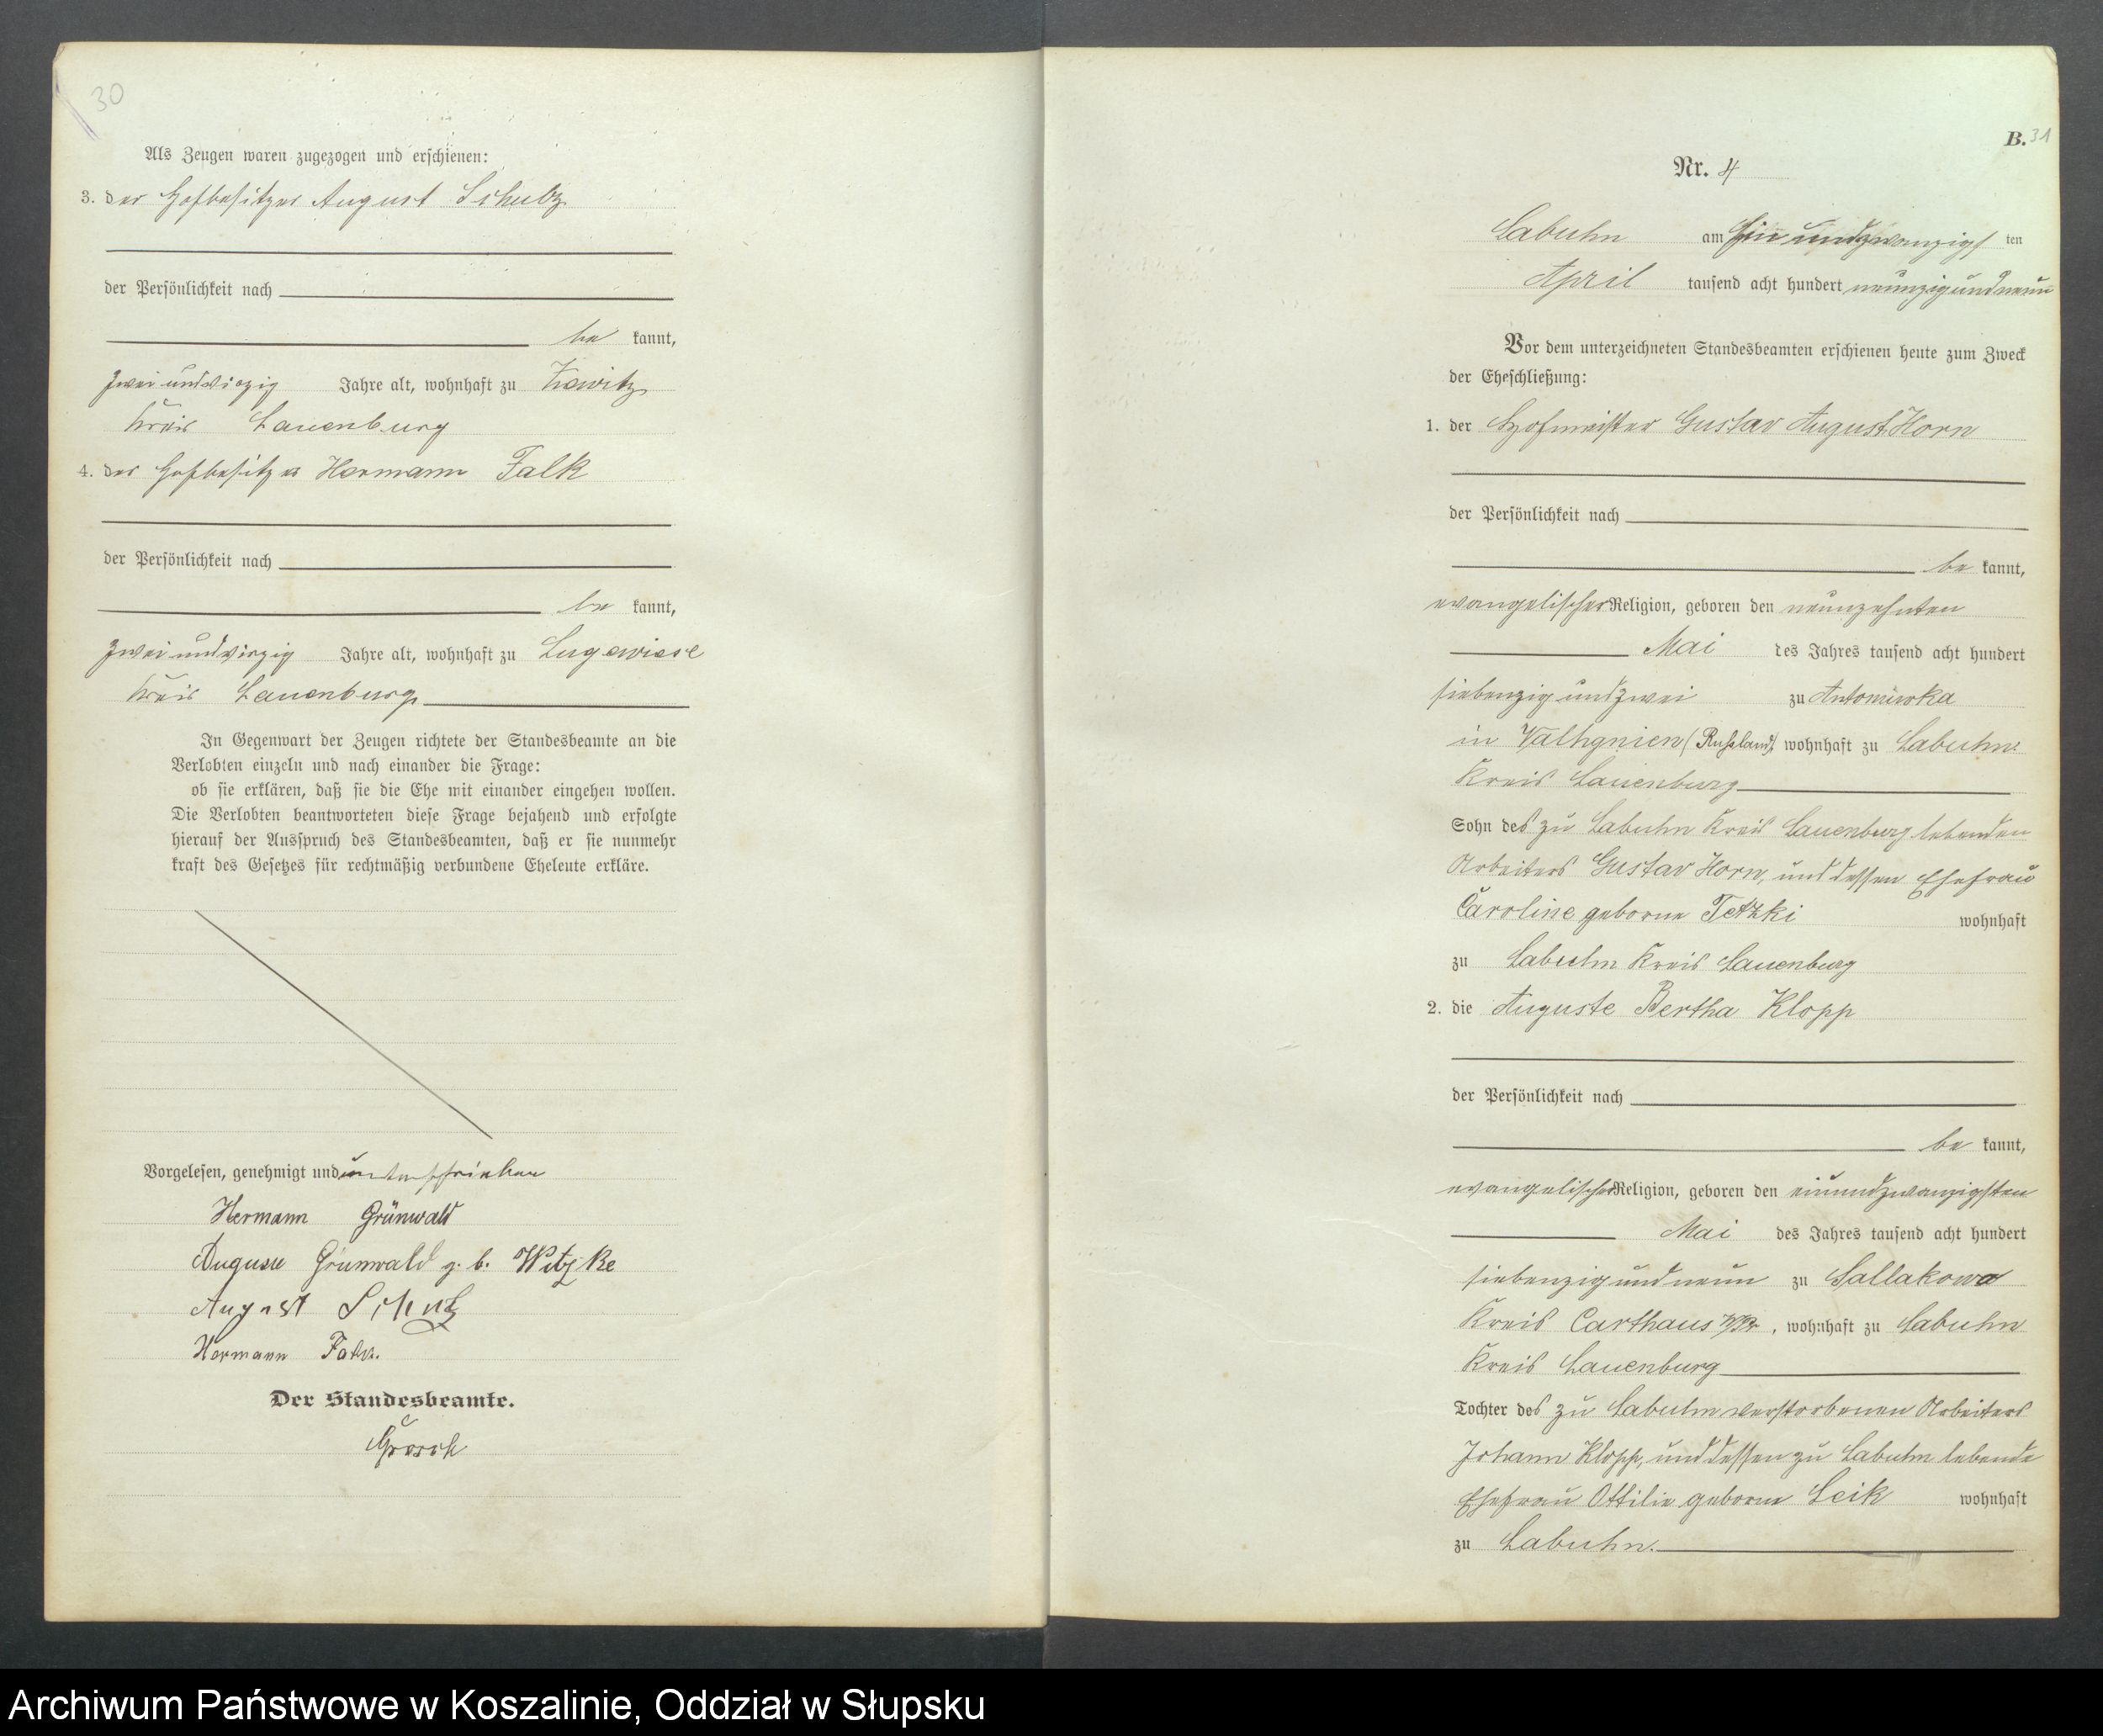 30
Als Zeugen waren zugezogen und erschienen:
3. der Hofbesitzer August Schulz
der Persönlichkeit nach
be kannt,
zweiundvierzig Jahre alt, wohnhaft zu
Kreis Lauenburg
4. der Hofbesitzer Hermann Falk
der Persönlichkeit nach
be kannt,
zweiundvierzig Jahre alt, wohnhaft zu Lugewiese
Kreis Lauenburg
In Gegenwart der Zeugen richtete der Standesbeamte an die
Verlobten einzeln und nach einander die Frage:
ob sie erklären, daß sie die Ehe mit einander eingehen wollen.
Die Verlobten beantworteten diese Frage bejahend und erfolgte
hierauf der Ausspruch des Standesbeamten, daß er sie nunmehr
kraft des Gesetzes für rechtmäßig verbundene Eheleute erkläre.
Vorgelesen, genehmigt und unterschrieben
Hermann Grünwald
Auguste Grünwald g. b. Witzke
August Schulz
Hermann Falk.
Der Standesbeamte.
Grosch
B. 31
Nr. 4
Labuhn am Ein undzwanzigs ten
April tausend acht hundert neunzigundneun
Vor dem unterzeichneten Standesbeamten erschienen heute zum Zweck
der Eheschließung:
1. der Hofmeister Gustav August Horn
der Persönlichkeit nach
be kannt,
evangelischer Religion, geboren den neunzehnten
Mai des Jahres tausend acht hundert
siebenzigundzwei zu Antoniwka
in Valhgnien (Russland) wohnhaft zu Labuhn
Kreis Lauenburg
Sohn des zu Labuhn Kreis Lauenburg lebenden
Arbeiters Gustav Horn, und dessen Ehefrau
Caroline geborne Tetzki wohnhaft
zu Labuhn Kreis Lauenburg
2. die Auguste Bertha Klopp
der Persönlichkeit nach
be kannt,
evangelischer Religion, geboren den einundzwanzigsten
Mai des Jahres tausend acht hundert
siebenzigundneun zu Sallakowo
Kreis Carthaus W/Pr, wohnhaft zu Labuhn
Kreis Lauenburg
Tochter des zu Labuhn verstorbenen Arbeiters
Johann Klopp, und dessen zu Labuhn lebende
Ehefrau Ottilie geborne Leik wohnhaft
zu Labuhn.
Archiwum Państwowe w Koszalinie, Oddział w Słupsku